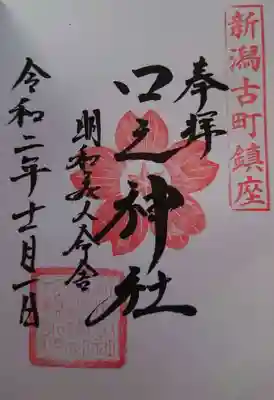 新潟古町鎮座
奉拝
口之神社
明和義人合舎
令和二年十一月一日